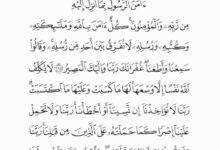 ءَامَنَ ٱلرَّسُولُ بِمَآ أُنزِلَ إِلَيْهِ
مِن رَّبِّهِۦ وَٱلْمُؤْمِنُونَ ۚ كُلٌّ ءَامَنَ بِٱللَّهِ وَمَلَـٰٓئِكَتِهِۦ
وَكُتُبِهِۦ وَرُسُلِهِۦ لَا نُفَرِّقُ بَيْنَ أَحَدٍ مِّن رُّسُلِهِۦ ۚ وَقَالُوا۟
سَمِعْنَا وَأَطَعْنَا ۖ غُفْرَانَكَ رَبَّنَا وَإِلَيْكَ ٱلْمَصِيرُ لَا يُكَلِّفُ
ٱللَّهُ نَفْسًا إِلَّا وُسْعَهَا ۚ لَهَا مَا كَسَبَتْ وَعَلَيْهَا مَا ٱكْتَسَبَتْ ۗ
رَبَّنَا لَا تُؤَاخِذْنَآ إِن نَّسِينَآ أَوْ أَخْطَأْنَا ۚ رَبَّنَا وَلَا تَحْمِلْ
عَلَيْنَآ إِصْرًا كَمَا حَمَلْتَهُۥ عَلَى ٱلَّذِينَ مِن قَبْلِنَا ۚ رَبَّنَا